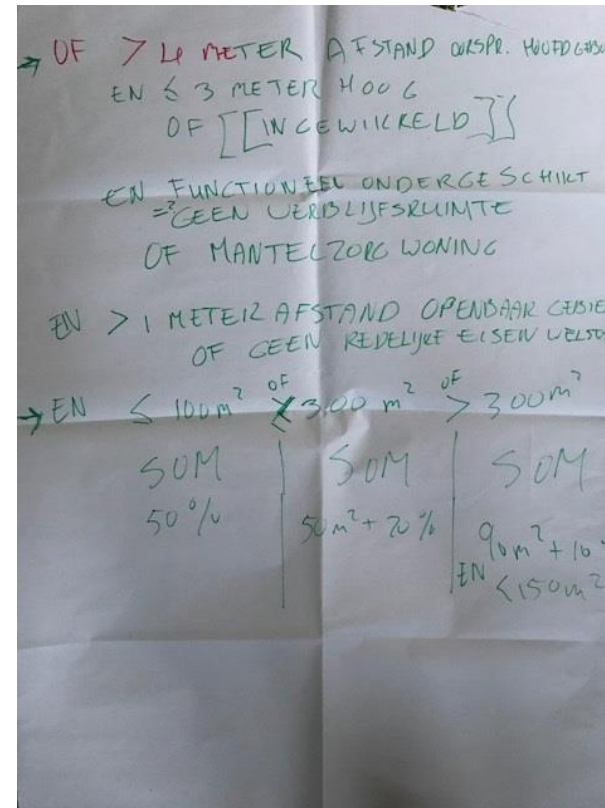 → OF > 4 METER AFSTAND OORSPR. HOOFDGEBO
EN ≤ 3 METER HOOG
OF [[INGEWIKKELD]]
EN FUNCTIONEEL ONDERGESCHIKT
=? GEEN VERBLIJFSRUIMTE
OF MANTELZORG WONING
EN > 1 METER AFSTAND OPENBAAR GEBIE
OF GEEN REDELIJKE EISEN WELST
→ EN ≤ 100 m² OF ≤ 300 m² OF > 300 m²
SOM | SOM | SOM
50% | 50 m² + 20% | 90 m² + 10
EN < 150 m²